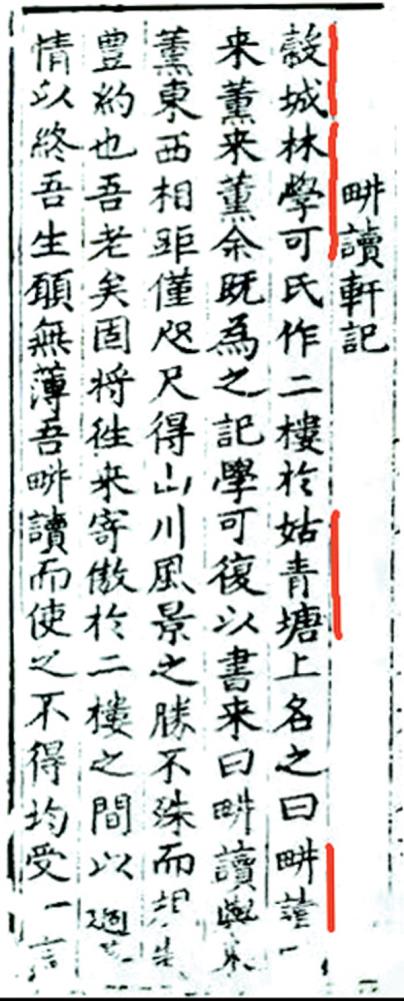 畊讀軒記
穀城林學可氏作二樓於姑青塘上名之曰畊讀一
来薰来薰余既為之記學可復以書来曰畊讀與来
薰東西相距僅咫尺得山川風景之勝不殊而
豊約也吾老矣固将徃来寄傲於二樓之間以
情以終吾生願無薄吾畊讀而使之不得均受一言